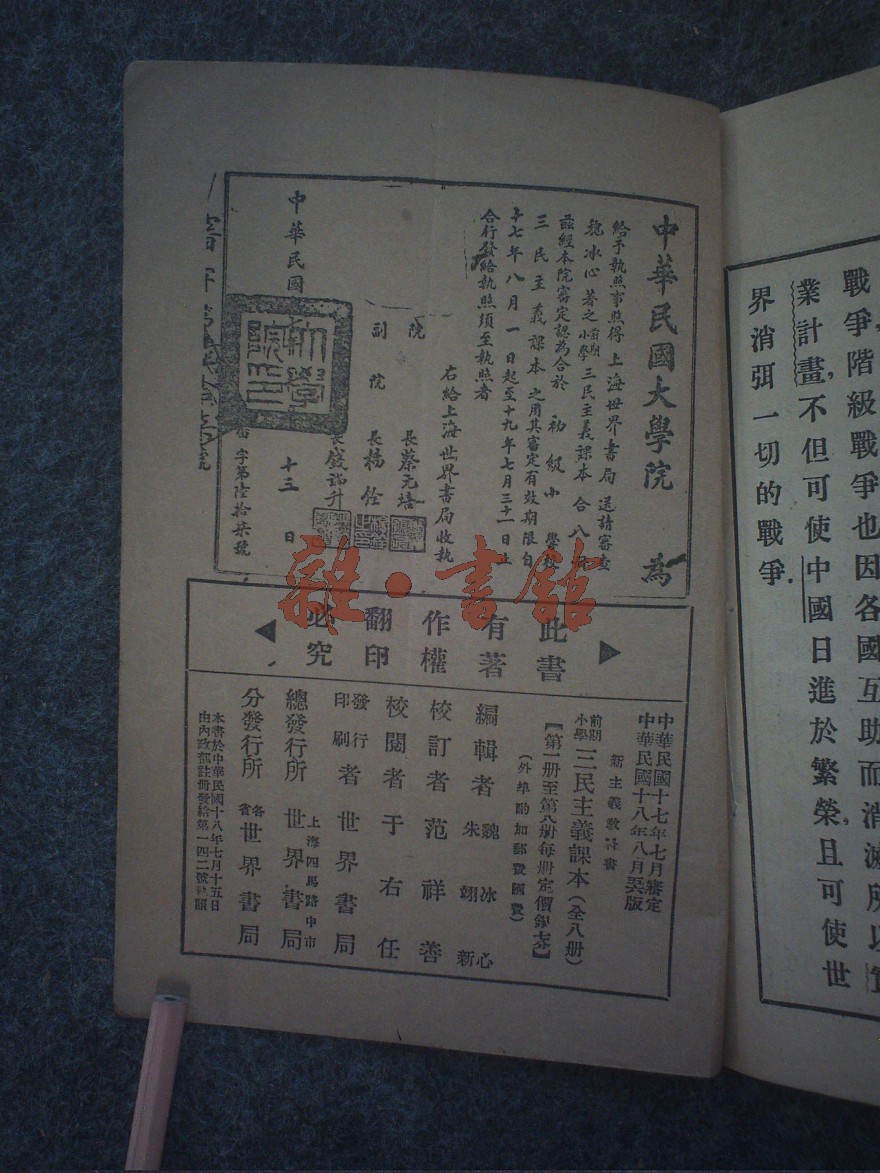 戰爭,階級戰爭也因各國互助而消滅所以實
業計畫,不但可使中國日進於繁榮,且可使世
界消弭一切的戰爭.
中華民國大學院 為
給予執照事照得上海世界書局送請審查
魏冰心著之前期小學三民主義課本合八冊
茲經本院審定認為合於初級小學校
三民主義課本之用其審定有效期限自
十七年八月一日起至十九年七月三十一日止
合行發給執照須至執照者
右給上海世界書局收執
院長蔡元培
副院長楊銓
中華民國
十三日
字第陸拾柒號
此書有著作權翻印必究
中華民國十七年七月審定
中華民國十八年八月版
新主義教科書
前期小學三民主義課本(全八冊)
【第一冊至第八冊每冊定價銀】
(外埠酌加郵費匯費)
編輯者 魏冰心 朱翊新
校訂者 范祥善
校閱者 于右任
發行印刷者 世界書局
上海四馬路中市
總發行所 世界書局
分發行所 各省世界書局
本書於中華民國十八年七月十五日
由內政部註冊發給第一四二號執照
雜·書館